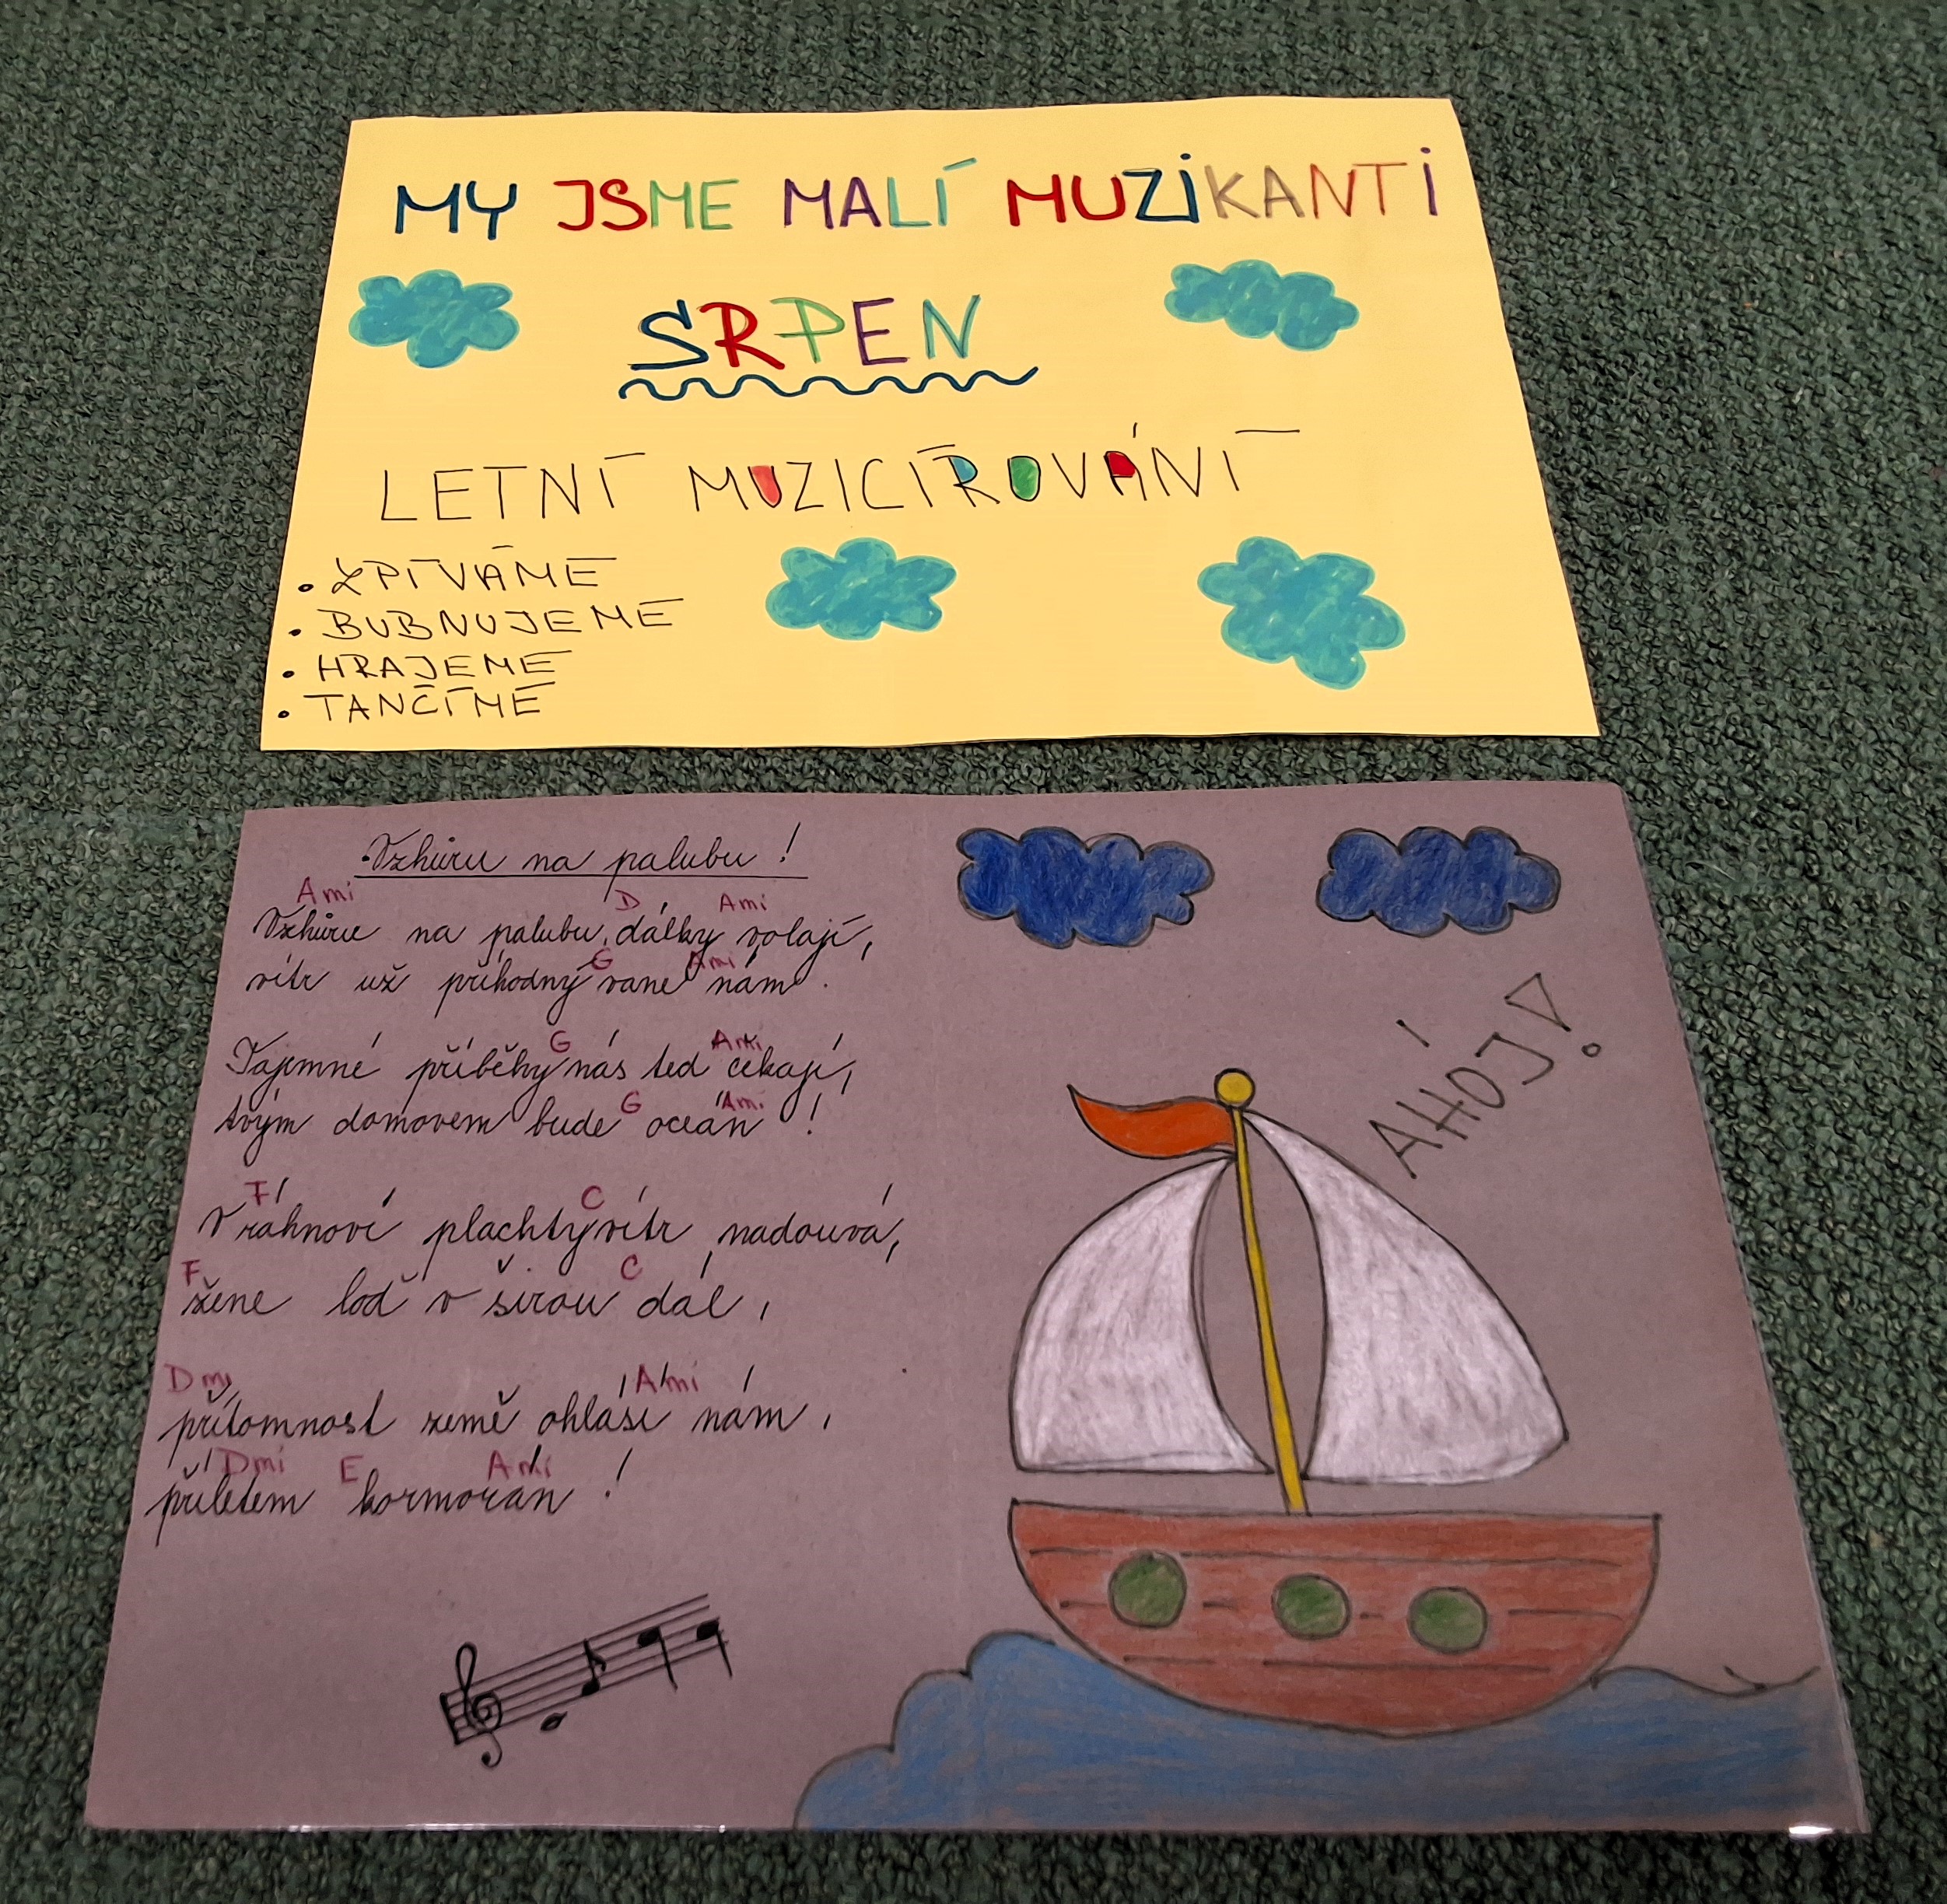 MY JSME MALÍ MUZIKANTI
SRPEN
LETNÍ MUZICÍROVÁNÍ
• ZPÍVÁME
• BUBNUJEME
• HRAJEME
• TANČÍME
Vzhůru na palubu!
Ami D Ami
Vzhůru na palubu, dálky volají,
G Ami
vítr už příhodný vane nám.
G Ami
Tajemné příběhy nás teď čekají,
G Ami
tvým domovem bude oceán!
F C
V ráhnoví plachty vítr nadouvá,
F C
žene loď v širou dál,
Dmi Ami
přítomnost země ohlásí nám,
Dmi E Ami
příletem kormorán!
AHOJ!